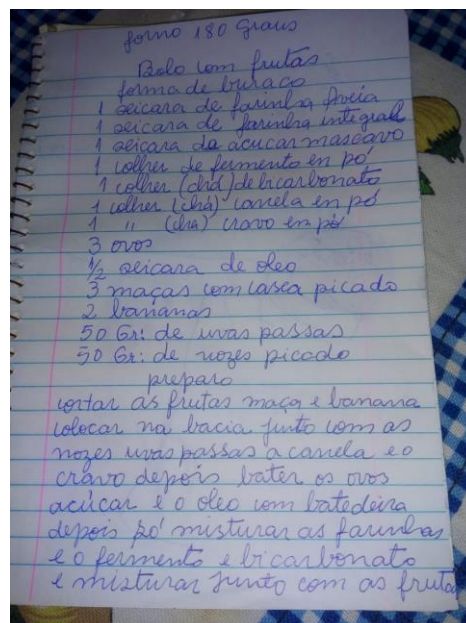 forno 180 Graus
Bolo com frutas
forma de buraco
1 xeicara de farinha Aveia
1 xeicara de farinha integral
1 xeicara da açucar mascavo
1 colher de fermento en pó
1 colher (chá) de bicarbonato
1 colher (chá) canela en pó
1 " (cha) cravo em pó
3 ovos
1/2 xeicara de oleo
3 maças com casca picado
2 bananas
50 Gr: de uvas passas
50 Gr: de nozes picado
preparo
cortar as frutas maça e banana
colocar na bacia junto com as
nozes uvas passas a canela e o
cravo depois bater os ovos
acúcar e o oleo com batedeira
depois só misturar as farinhas
e o fermento e bicarbonato
e misturar junto com as fruta